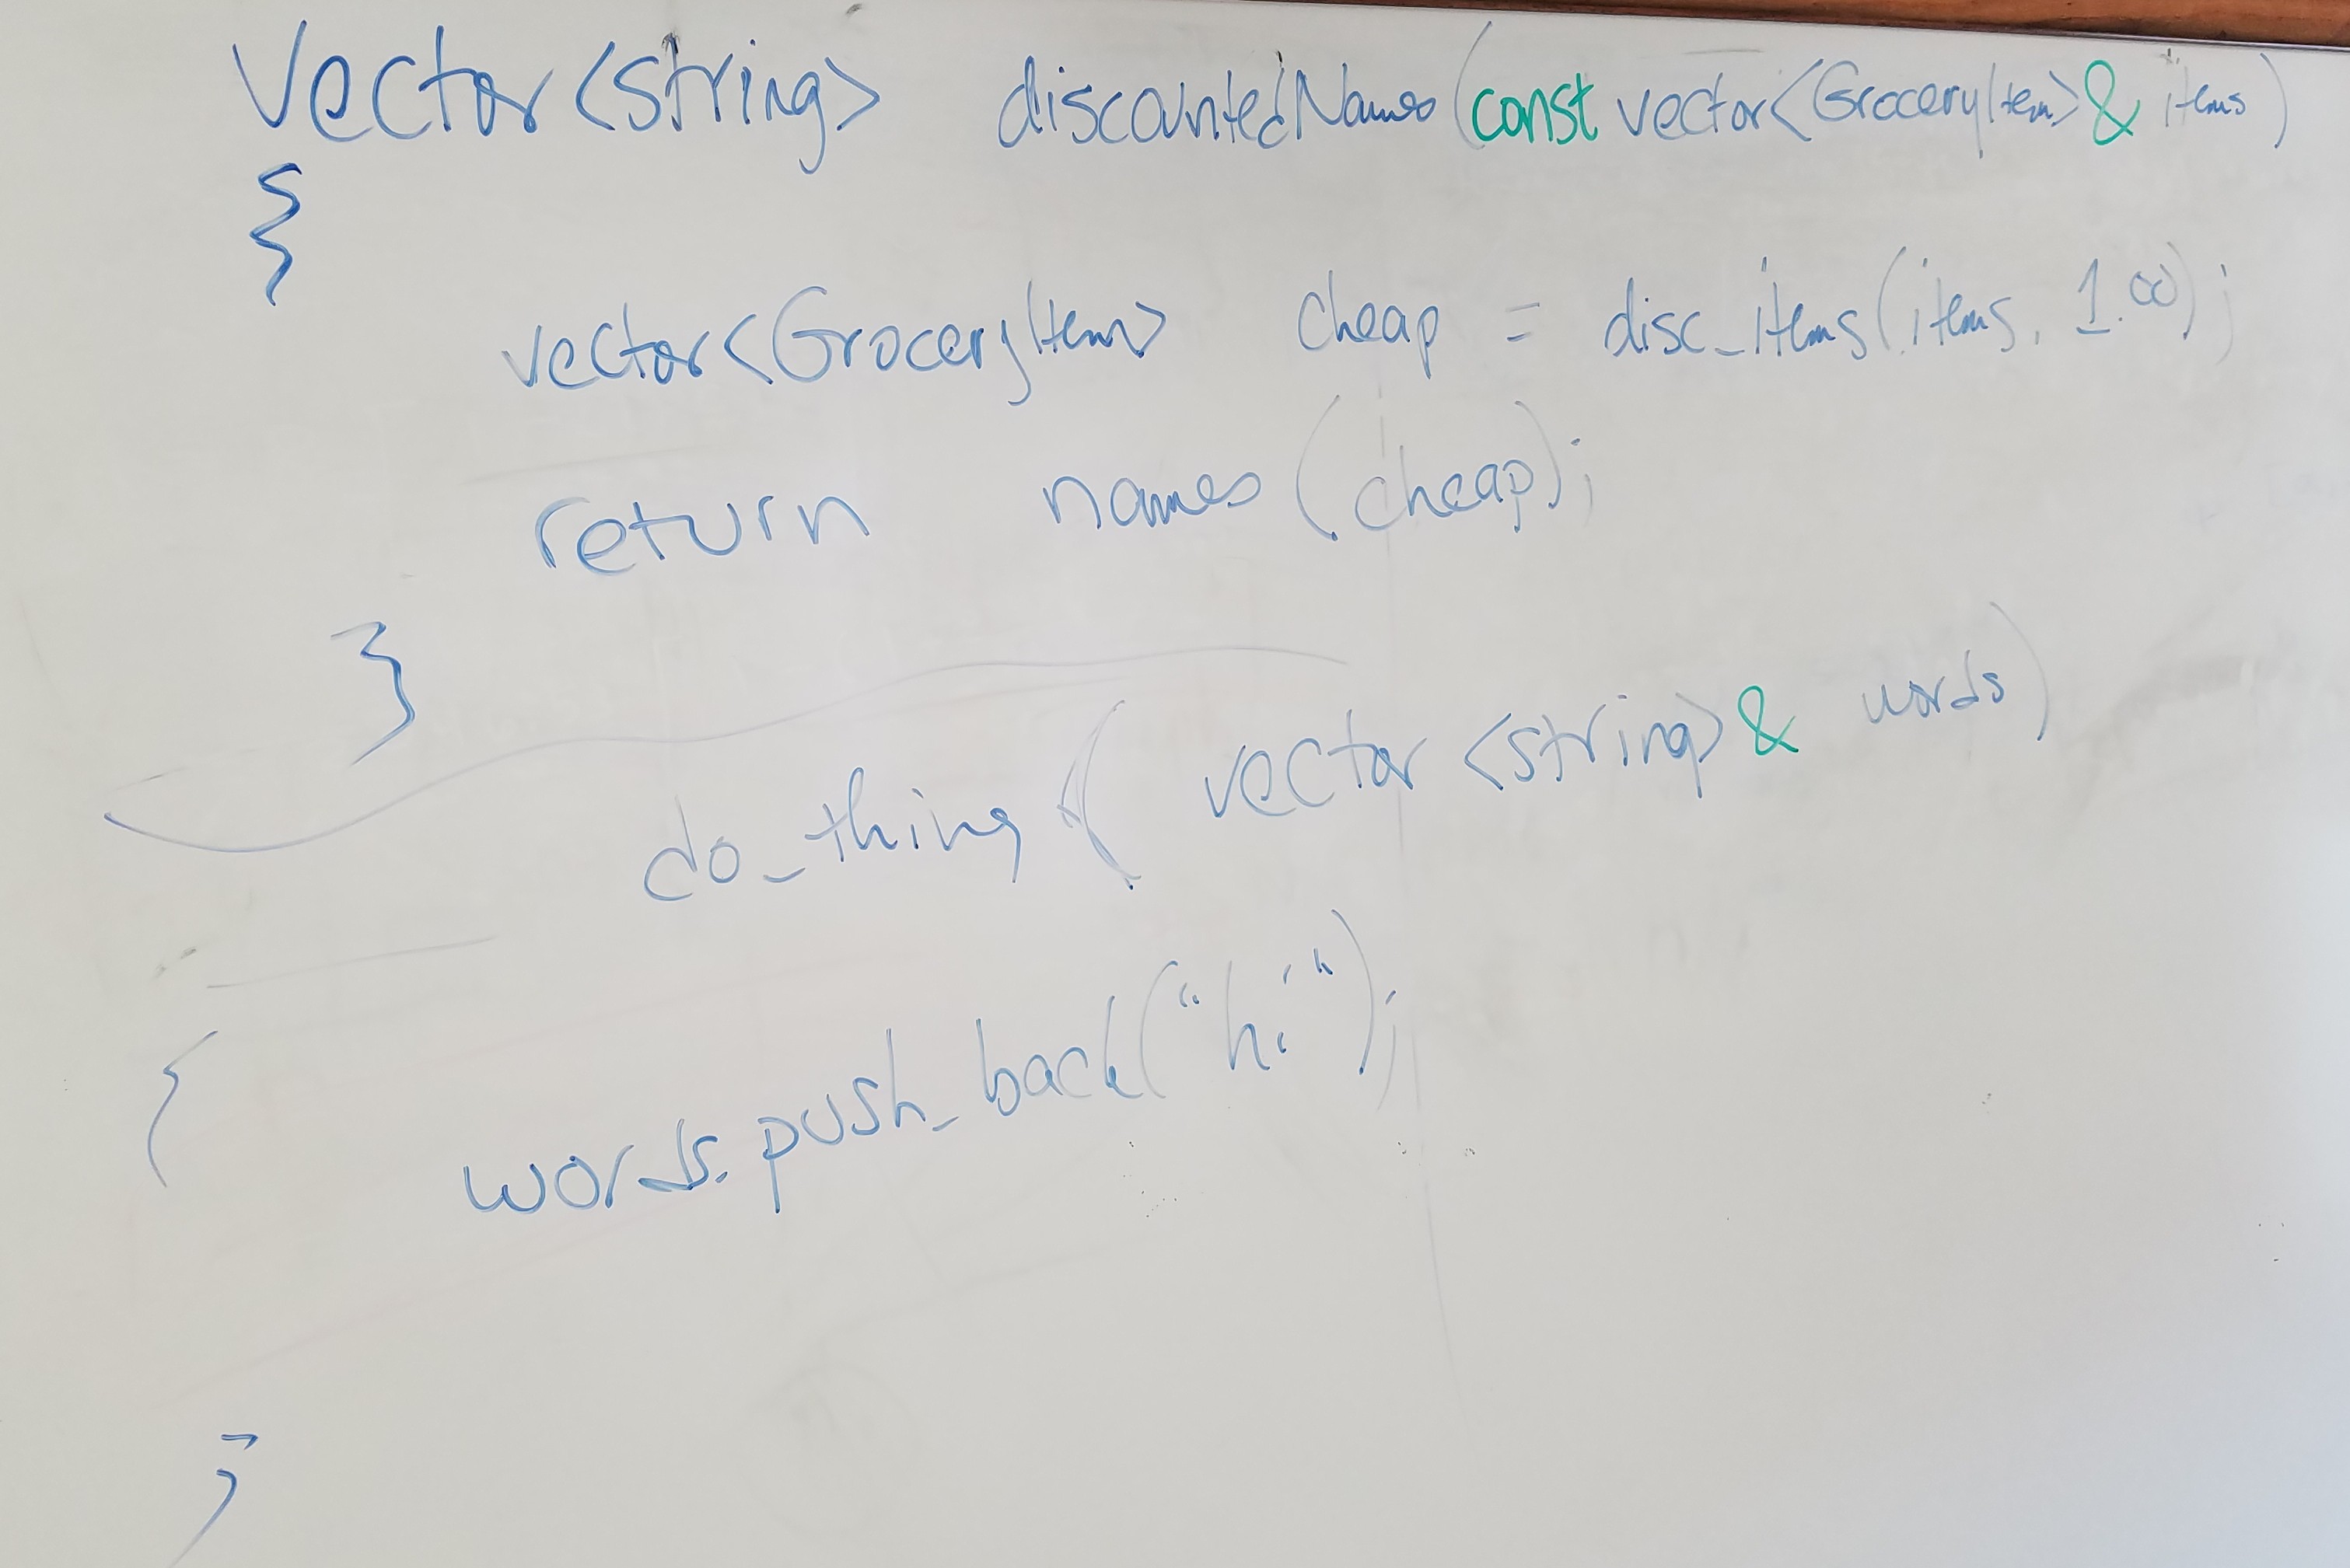 vector<string> discountedNames(const vector<GroceryItem>& items)
{
vector<GroceryItem> cheap = disc_items(items, 1.00);
return names(cheap);
}
do_thing( vector <string>& words)
{
words.push_back("hi");
}